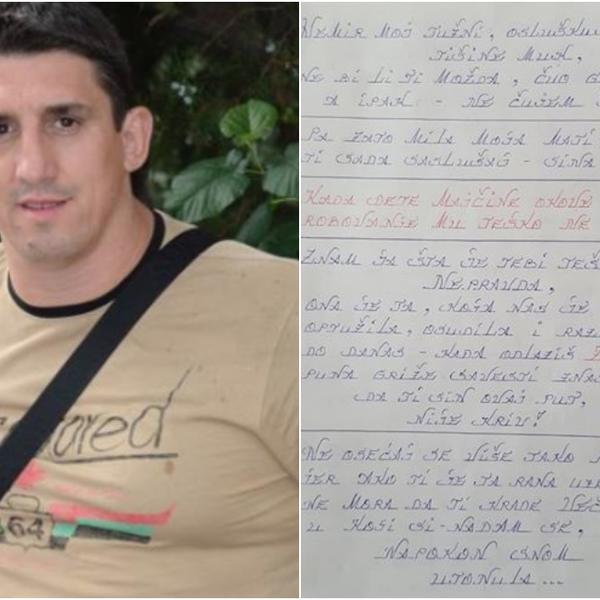 64
NEMIR MOJ TUŽNI, OSLUŠKU
TUŠINE MUK,
NE BI LI TI MOŽDA, ČUO G
A IPAK - NE ČUJEM
PA ZATO MILA MOJA MATI
TI SADA SASLUŠAJ - SINA
KADA DETE MAJČINE OKOVE
ROBOVANJE MU TEŠKO NE
ZNAM JA ŠTA JE TEBI TEŠ
NEPRAVDA,
ONA JE TA, KOJA NAS JE
OPTUŽILA, OSUDILA I RAZ
DO DANAS - KADA ODLAZIŠ
PUNA GRIŽE SAVESTI ZNAJ
DA TI SIN OVAJ PUT,
NIJE KRIV!
NE OSEĆAJ SE VIŠE TAKO
JER AKO TI JE TA RANA
NE MORA DA TI KRADE VEČ
U KOSI SI - NADAM SE,
NAPOKON SNOM
UTONULA...